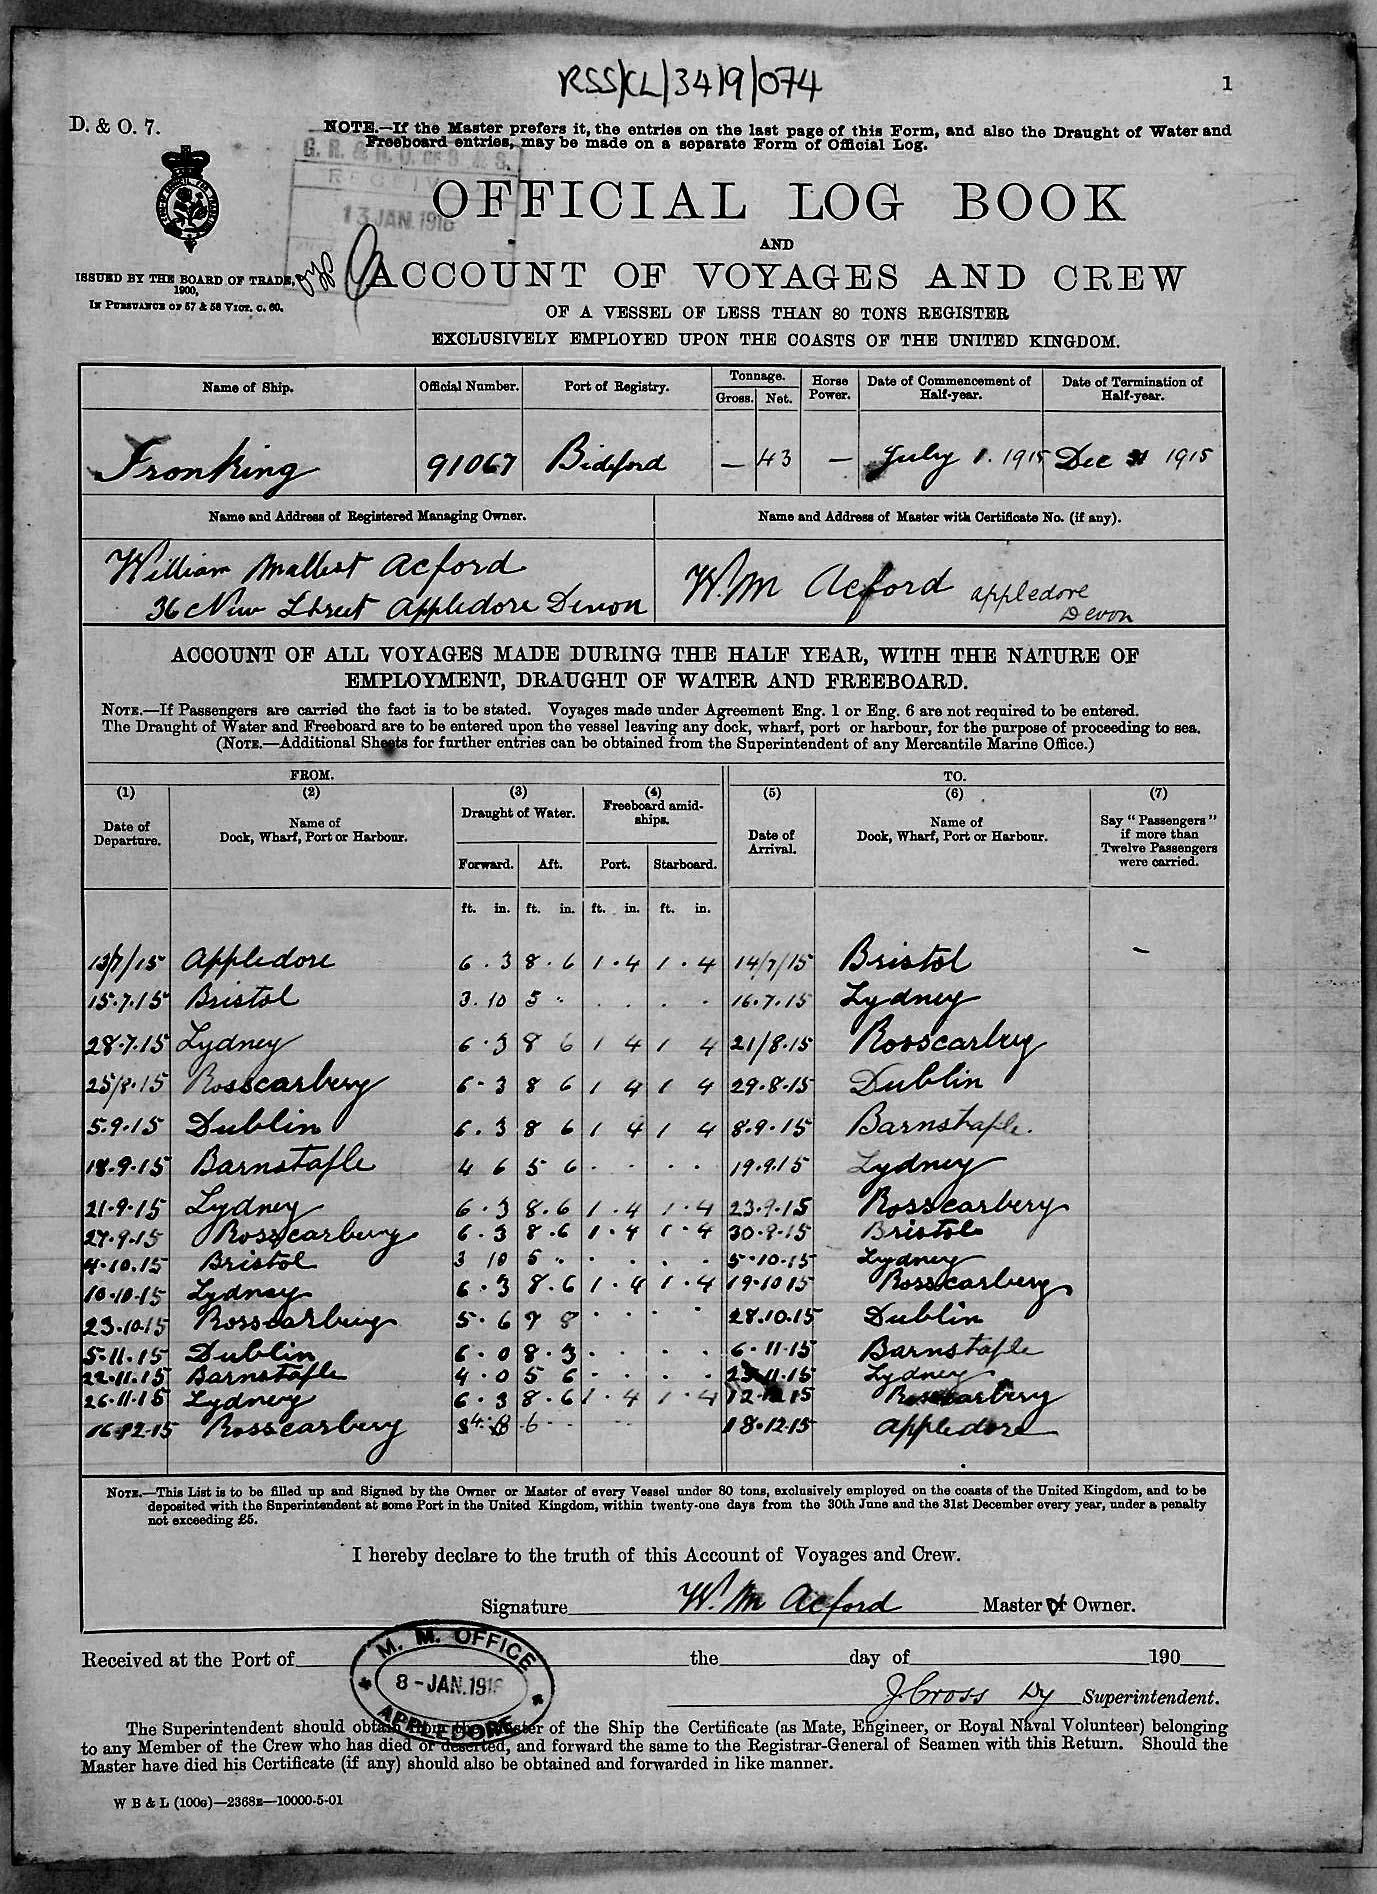 RSS/CL/3419/074
1
D. & O. 7.
NOTE.—If the Master prefers it, the entries on the last page of this Form, and also the Draught of Water and
Freeboard entries, may be made on a separate Form of Official Log.
RECEIVED
13 JAN. 1916
OFFICIAL LOG BOOK
AND
ACCOUNT OF VOYAGES AND CREW
ISSUED BY THE BOARD OF TRADE,
1900,
IN PURSUANCE OF 57 & 58 VICT. C. 60.
OF A VESSEL OF LESS THAN 80 TONS REGISTER
EXCLUSIVELY EMPLOYED UPON THE COASTS OF THE UNITED KINGDOM.
Name of Ship. Official Number. Port of Registry. Tonnage. Gross. Net. Horse Power. Date of Commencement of Half-year. Date of Termination of Half-year.
Iron King 91067 Bideford — 43 — July 1. 1915 Dec 31 1915
Name and Address of Registered Managing Owner. Name and Address of Master with Certificate No. (if any).
William Mallest Acford W. M Acford Appledore
36 New Street Appledore Devon Devon
ACCOUNT OF ALL VOYAGES MADE DURING THE HALF YEAR, WITH THE NATURE OF
EMPLOYMENT, DRAUGHT OF WATER AND FREEBOARD.
NOTE.—If Passengers are carried the fact is to be stated. Voyages made under Agreement Eng. 1 or Eng. 6 are not required to be entered.
The Draught of Water and Freeboard are to be entered upon the vessel leaving any dock, wharf, port or harbour, for the purpose of proceeding to sea.
(NOTE.—Additional Sheets for further entries can be obtained from the Superintendent of any Mercantile Marine Office.)
FROM. TO.
(1) (2) (3) (4) (5) (6) (7)
Date of Departure. Name of Dock, Wharf, Port or Harbour. Draught of Water. Freeboard amid-ships. Date of Arrival. Name of Dock, Wharf, Port or Harbour. Say "Passengers" if more than Twelve Passengers were carried.
Forward. Aft. Port. Starboard.
ft. in. ft. in. ft. in. ft. in.
13/7/15 Appledore 6.3 8.6 1.4 1.4 14/7/15 Bristol —
15.7.15 Bristol 3.10 5 16.7.15 Lydney
28.7.15 Lydney 6.3 8 6 1 4 1 4 21/8.15 Rosscarbry
25/8.15 Rosscarbery 6-3 8 6 1 4 1 4 29.8.15 Dublin
5.9.15 Dublin 6.3 8 6 1 4 1 4 8.9.15 Barnstaple.
18.9.15 Barnstaple 4 6 5 6 19.9.15 Lydney
21.9.15 Lydney 6.3 8.6 1.4 1.4 23.9.15 Rosscarbery
27.9.15 Rosscarbery 6.3 8.6 1.4 1.4 30.9.15 Bristol
4.10.15 Bristol 3 10 5 5.10.15 Lydney
10.10.15 Lydney 6.3 8.6 1.4 1.4 19.10 15 Rosscarbery
23.10.15 Rosscarbery 5.6 7 8 28.10.15 Dublin
5.11.15 Dublin 6.0 8.3 6.11.15 Barnstaple
22.11.15 Barnstaple 4.0 5 6 11.15 Lydney
26.11.15 Lydney 6.3 8.6 1.4 1.4 12.12 15 Rosscarbery
16.12.15 Rosscarbery 18.12.15 Appledore
NOTE.—This List is to be filled up and Signed by the Owner or Master of every Vessel under 80 tons, exclusively employed on the coasts of the United Kingdom, and to be
deposited with the Superintendent at some Port in the United Kingdom, within twenty-one days from the 30th June and the 31st December every year, under a penalty
not exceeding £5.
I hereby declare to the truth of this Account of Voyages and Crew.
Signature W. M Acford Master or Owner.
Received at the Port of the day of 190
M. M. OFFICE
8 - JAN. 1916
APPLEDORE
J Cross Dy Superintendent.
The Superintendent should obtain from the Master of the Ship the Certificate (as Mate, Engineer, or Royal Naval Volunteer) belonging
to any Member of the Crew who has died or deserted, and forward the same to the Registrar-General of Seamen with this Return. Should the
Master have died his Certificate (if any) should also be obtained and forwarded in like manner.
W B & L (100G)—2368E—10000-5-01